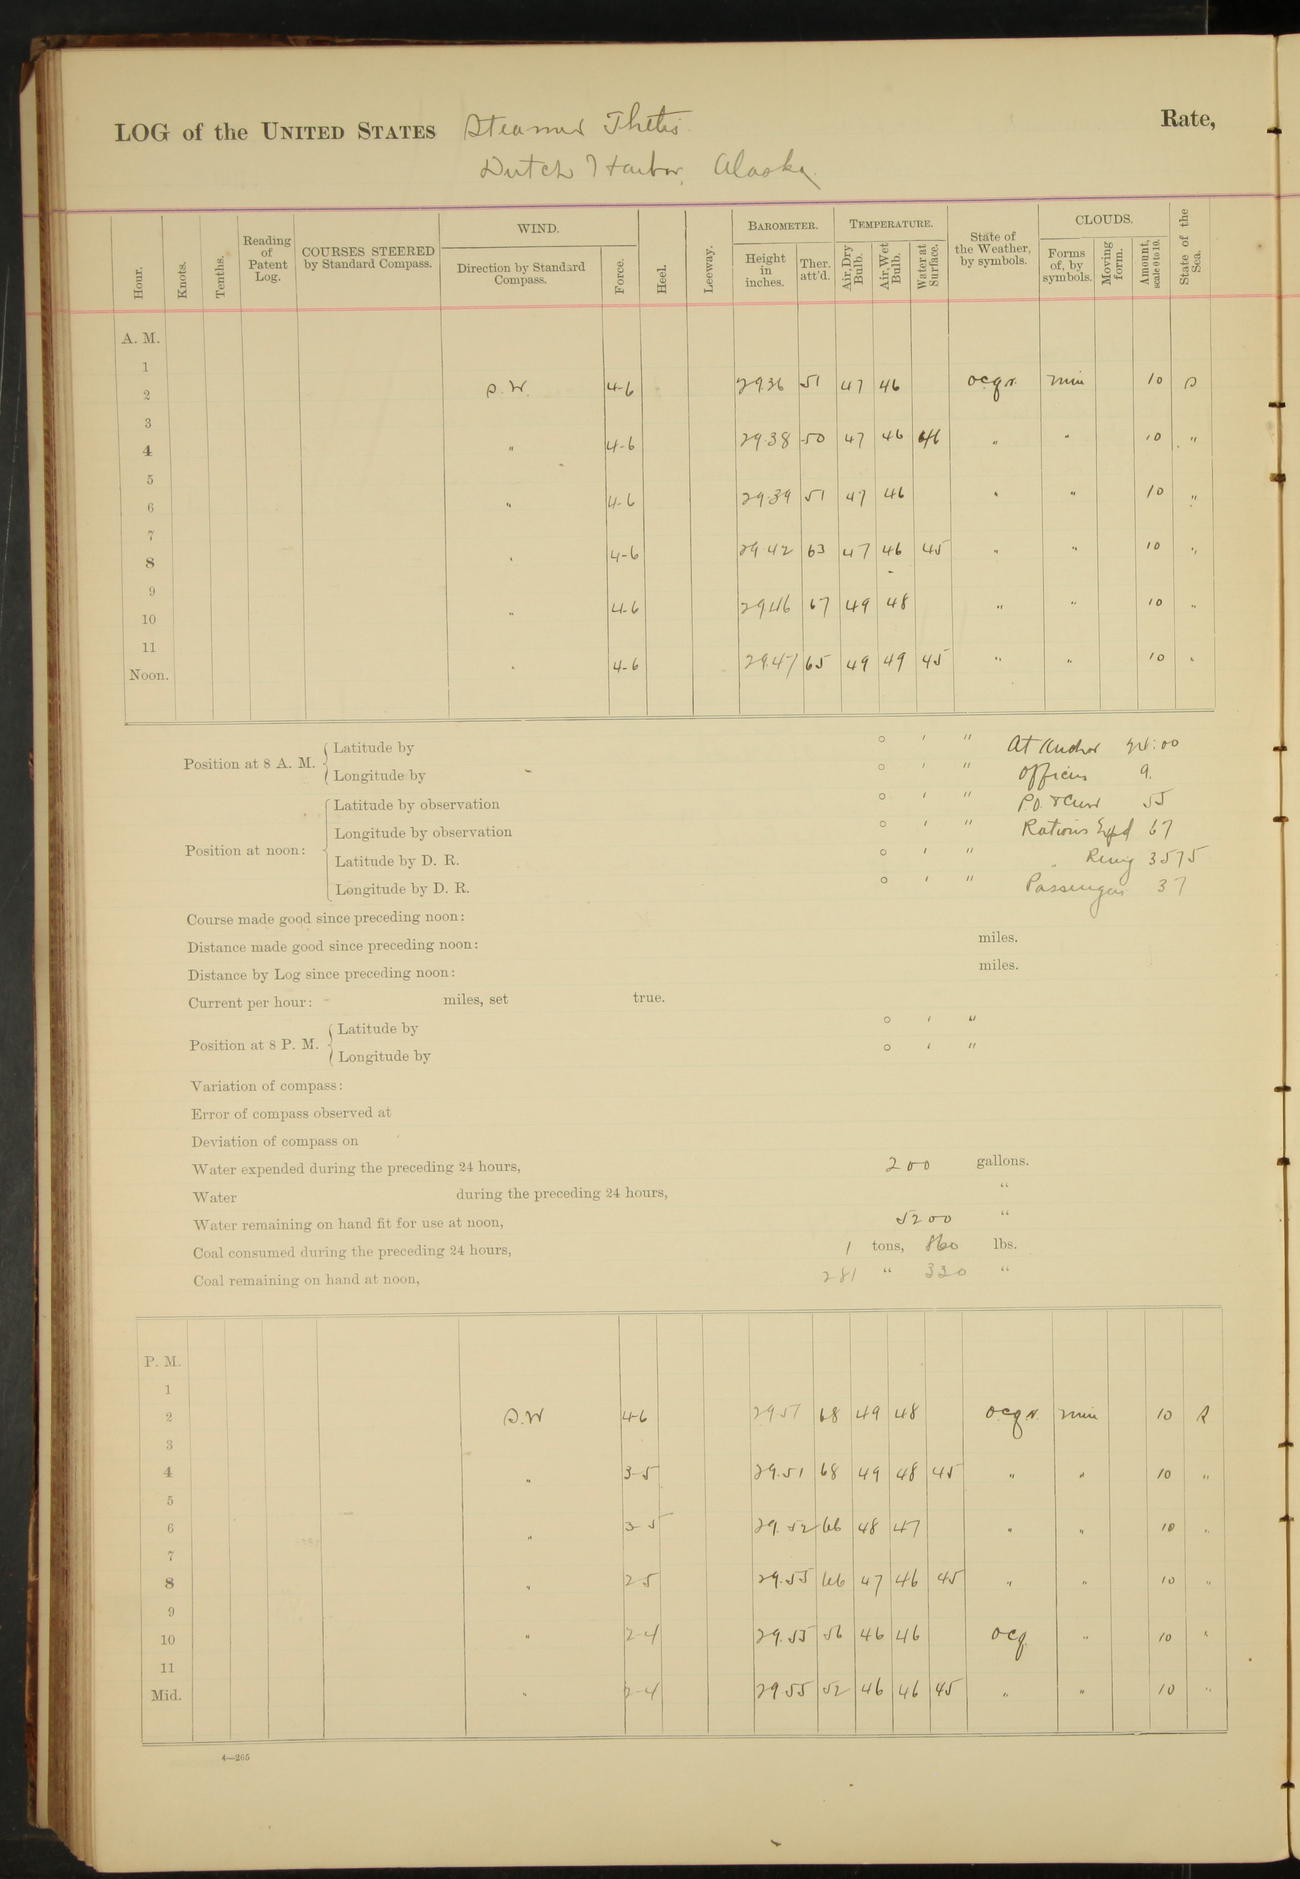 LOG of the UNITED STATES Steamer Thetis Rate,
Dutch Harbor, Alaska.
Hour. Knots. Tenths. Reading of Patent Log. COURSES STEERED by Standard Compass. WIND. Direction by Standard Compass. Force. Heel. Leeway. BAROMETER. Height in inches. Ther. att'd. TEMPERATURE. Air, Dry Bulb. Air, Wet Bulb. Water at Surface. State of the Weather, by symbols. CLOUDS. Forms of, by symbols. Moving form. Amount, scale 0 to 10. State of the Sea.
A. M.
1
2 S.W. 4-6 29.36 51 47 46 ocqr. nim 10 S
3
4 " 4-6 29.38 50 47 46 46 " " 10 "
5
6 " 4-6 29.39 51 47 46 " " 10 "
7
8 " 4-6 29.42 63 47 46 45 " " 10 "
9
10 " 4-6 29.46 67 49 48 " " 10 "
11
Noon. " 4-6 29.47 65 49 49 45 " " 10 "
Position at 8 A. M. Latitude by ° ' " At Anchor :00
Longitude by ° ' " Officers 9.
Position at noon: Latitude by observation ° ' " P.O. & Crew 55
Longitude by observation ° ' " Rations Expd 67
Latitude by D. R. ° ' " " Remg 3575
Longitude by D. R. ° ' " Passengers 37
Course made good since preceding noon:
Distance made good since preceding noon: miles.
Distance by Log since preceding noon: miles.
Current per hour: miles, set true.
Position at 8 P. M. Latitude by ° ' "
Longitude by ° ' "
Variation of compass:
Error of compass observed at
Deviation of compass on
Water expended during the preceding 24 hours, 200 gallons.
Water during the preceding 24 hours, "
Water remaining on hand fit for use at noon, 5200 "
Coal consumed during the preceding 24 hours, 1 tons, 860 lbs.
Coal remaining on hand at noon, 281 " 330 "
P. M.
1
2 S.W 4-6 29 57 68 49 48 ocqr. nim 10 S
3
4 " 3-5 29.51 68 49 48 45 " " 10 "
5
6 " 3-5 29.52 66 48 47 " " 10 "
7
8 " 2-5 29.55 66 47 46 45 " " 10 "
9
10 " 2-4 29.55 56 46 46 ocq " 10 "
11
Mid. " 2-4 29 55 52 46 46 45 " " 10 "
4—265